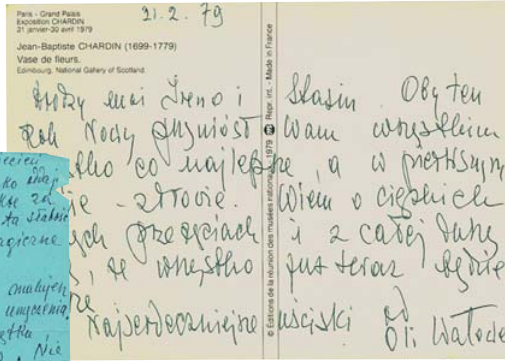 Paris - Grand Palais
Exposition CHARDIN
31 janvier-30 avril 1979
21.2.79
Jean-Baptiste CHARDIN (1699-1779)
Vase de fleurs.
Edimbourg, National Gallery of Scotland.
© Editions de la réunion des musées nationaux, 1979 Repr. int. - Made in France
Drodzy moi Ireno i Stasiu Oby ten
Rok Nowy przyniósł Wam wszystkim
co najlepsze, a w pierwszym
zdrowie. Wiem o ciężkich
przeżyciach i z całej duszy
że wszystko już teraz będzie
Najserdeczniejsze uściski od
Oli
ko
za
ta słabość
Nie